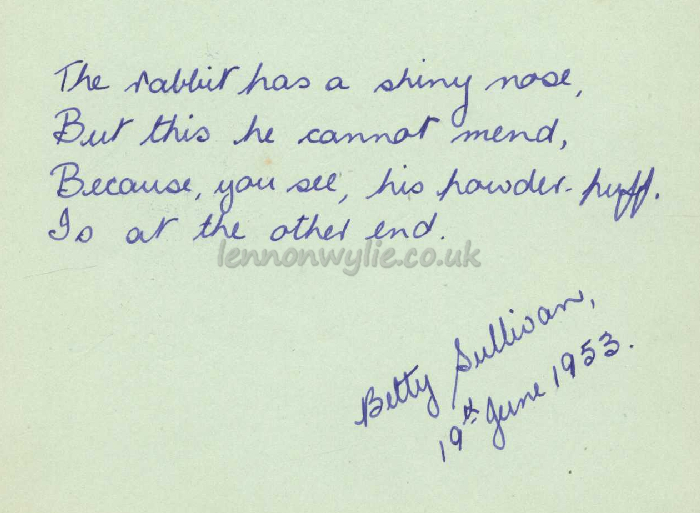 The rabbit has a shiny nose,
But this he cannot mend,
Because, you see, his powder-puff.
Is at the other end.
lennonwylie.co.uk
Betty Sullivan,
19th June 1953.